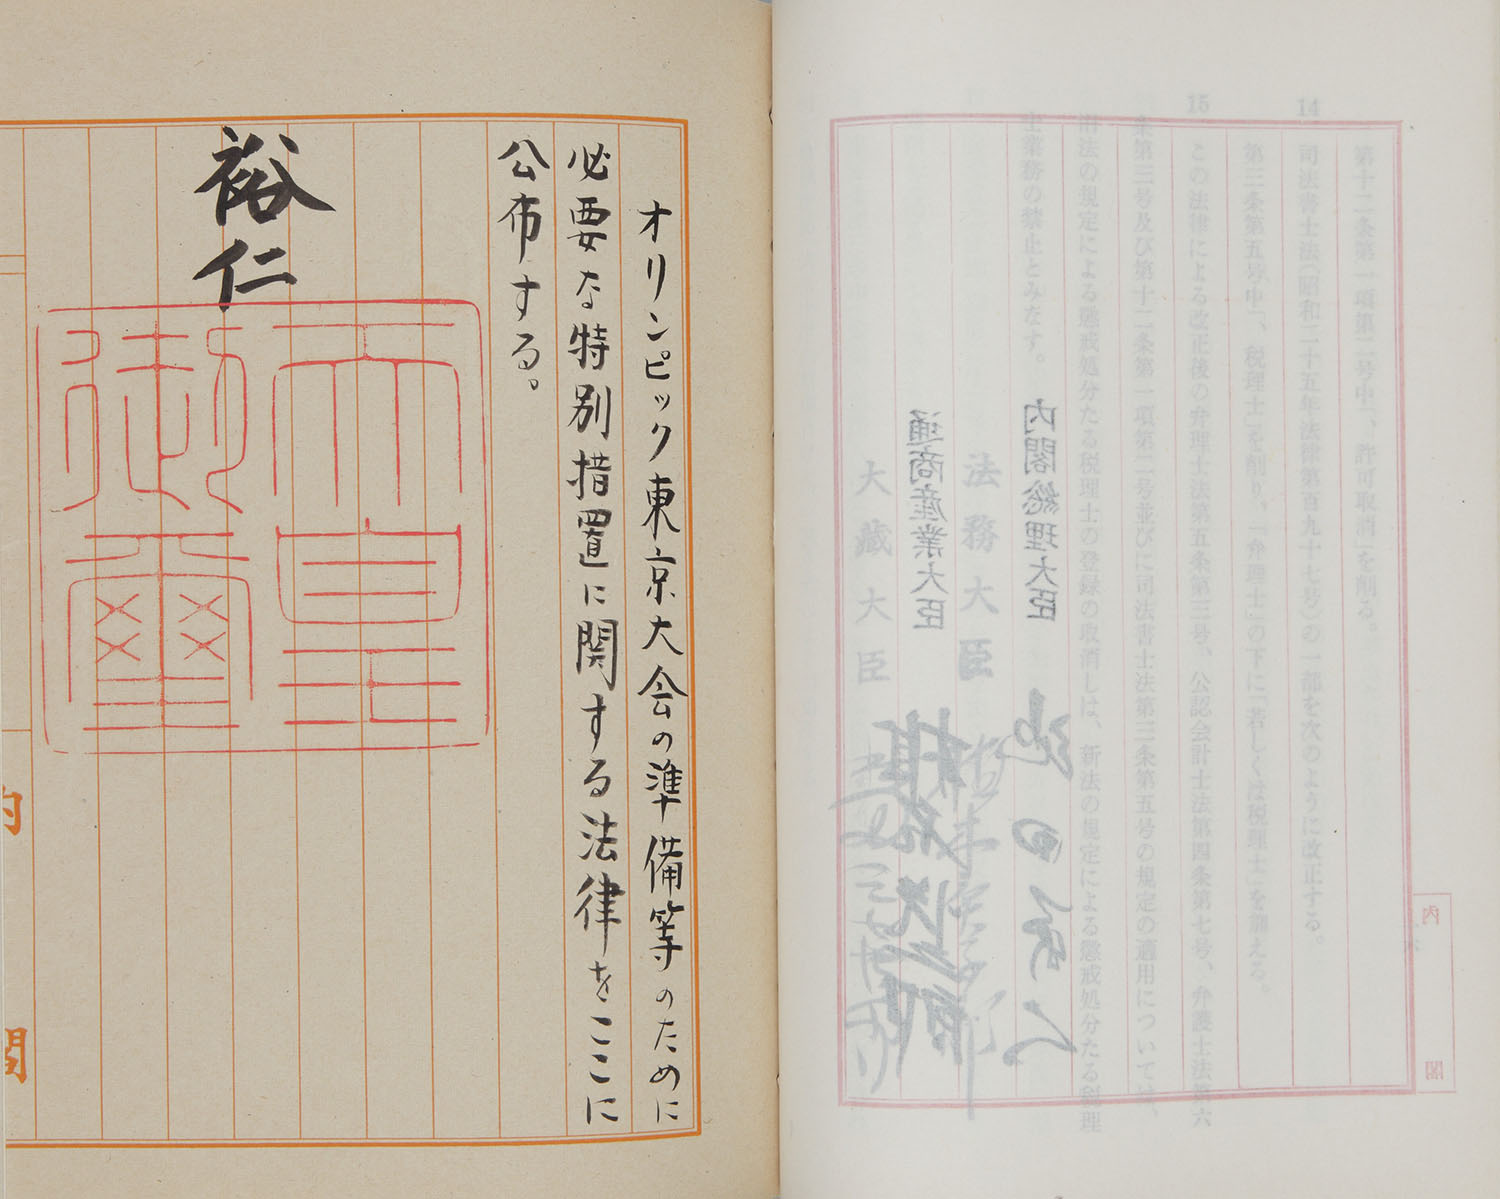 第十二条第一項第二号中「、許可取消」を削る。
14 司法書士法(昭和二十五年法律第百九十七号)の一部を次のように改正する。
第三条第五号中「、税理士」を削り、「弁理士」の下に「若しくは税理士」を加える。
15 この法律による改正後の弁理士法第五条第三号、公認会計士法第四条第七号、弁護士法第六
条第三号及び第十二条第一項第二号並びに司法書士法第三条第五号の規定の適用については、
旧法の規定による懲戒処分たる税理士の登録の取消しは、新法の規定による懲戒処分たる税理
士業務の禁止とみなす。
内閣総理大臣 池田勇人
法務大臣
通商産業大臣 椎名悦三郎
大藏大臣
内閣
オリンピック東京大会の準備等のために
必要な特別措置に関する法律をここに
公布する。
裕仁
天皇御璽
内閣